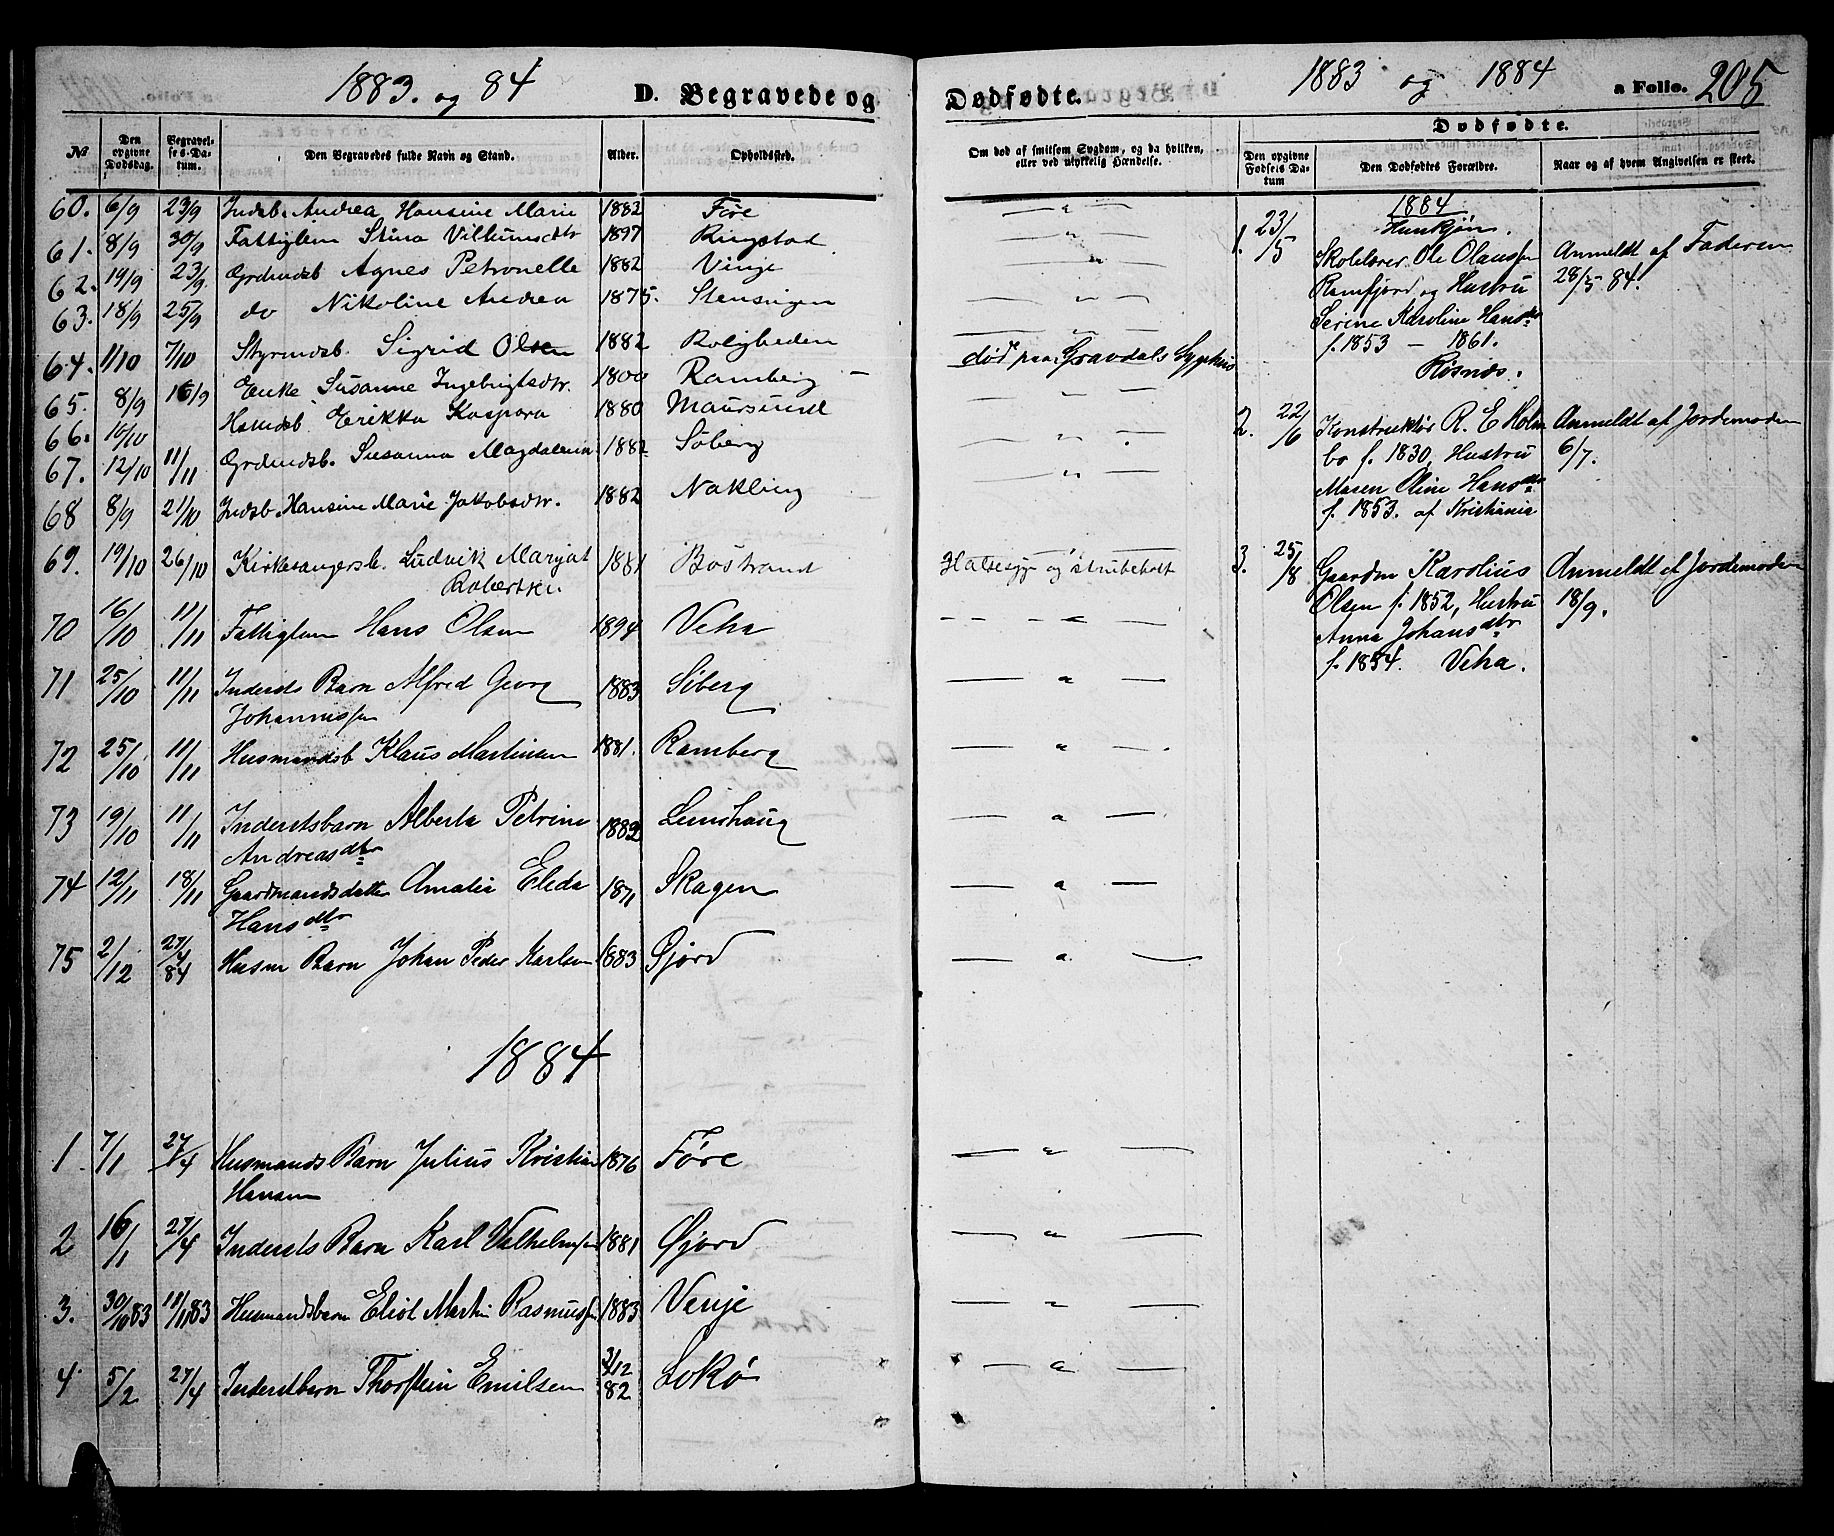 1883. og 84 D. Begravede og
№ Den opgivne Dødsdag. Begravelses-Datum. Den Begravedes fulde Navn og Stand. Alder. Opholdssted.
60. 6/9 23/9 Indsb. Andrea Hansine Marie 1882 Føre
61. 8/9 30/9 Fattiglem Stina Villumsdtr 1897 Ringstad
62. 19/9 23/9 Grdmdsb Agnes Petronelle 1882 Vinje
63. 18/9 25/9 do Nikoline Andrea 1875. Stensingen
64. 1/10 7/10 Styrmdsb. Sigrid Olsen 1882 Roligheden
65. 8/9 16/9 Enke Susanne Ingebrigtsdtr. 1800 Ramberg
66. 10/10 Hsmdsb Erikka Kaspara 1880 Maursund
67. 12/10 11/11 Grdmdsb. Susanna Magdalena 1882 Søberg
68 8/9 21/10 Indsb. Hansine Marie Jakobsdtr. 1882 Nakling
69. 19/10 26/10 Kirkesangersb. Ludvik Maryat 1881 Bostrand
70 16/10 11/11 Fattiglem Hans Olsen 1894 Veha
71 25/10 11/11 Indersts Barn Alfred Georg 1883 Siberg
Johannessen
72 25/10 11/11 Husmandsb Klaus Martinsen 1881. Ramberg
73 19/10 11/11 Inderstsbarn Alberta Petrine 1882
Andreasdtr
74 12/11 18/11 Gaardmandsdatter Amalia Eleda 1871 Skagen
Hansdtr
75 2/12 27/4 84 Husm Barn Johan Peder Karlsen 1883 Øjord
1884
1. 7/1 27/4 Husmands Barn Julius Kristian 1876 Føre
Hansen
2 16/1 27/4 Indersts Barn Karl Valhelmsen 1881 Øjord
3. 30/10 83 18/11 83 Husmandsbarn Eliot Martin Rasmussen 1883 Venje
4 5/2 27/4 Inderstbarn Thorstein Emilsen 12 82
Dødfødte. 1883 og 1884 a Folio. 205
Om død af smitsom Sygdom, og da hvilken, eller ved ulykkelig Hændelse.
Dødfødte.
Den opgivne Fødsels Datum Den Dødfødtes Forældre. Naar og af hvem Angivelsen er skeet.
død paa Gravdals Sygehus
Halssyge og strubehost
1884
Hunkjøn.
1. 23/5 Skolelærer Ole Olaussen Anmeldt af Faderen
Ramfjord og Hustru 28/5 84.
Serine Karoline Hansdtr
f. 1853 – 1861.
Røsnæs.
2. 22/6 Konstruktør R. E Holm Anmeldt af Jordemoder
bo f. 1830, Hustru 6/7.
Maren Oline Hansdtr
f. 1853. af Kristiania
3. 25/8 Gaardm Karolius Anmeldt af Jordemoder
Olsen f. 1852, Hustru 18/9.
Anna Johansdtr
f. 1854. Veha.